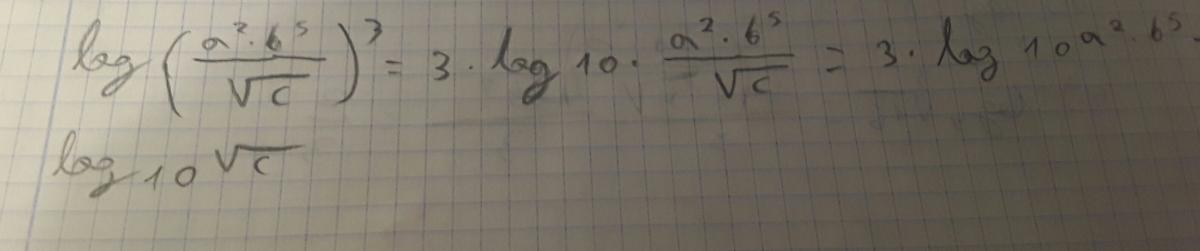 log (a² · b⁵ / √c)³ = 3 · log 10 · a² · b⁵ / √c = 3 · log 10 a² · b⁵ ·
log 10 √c